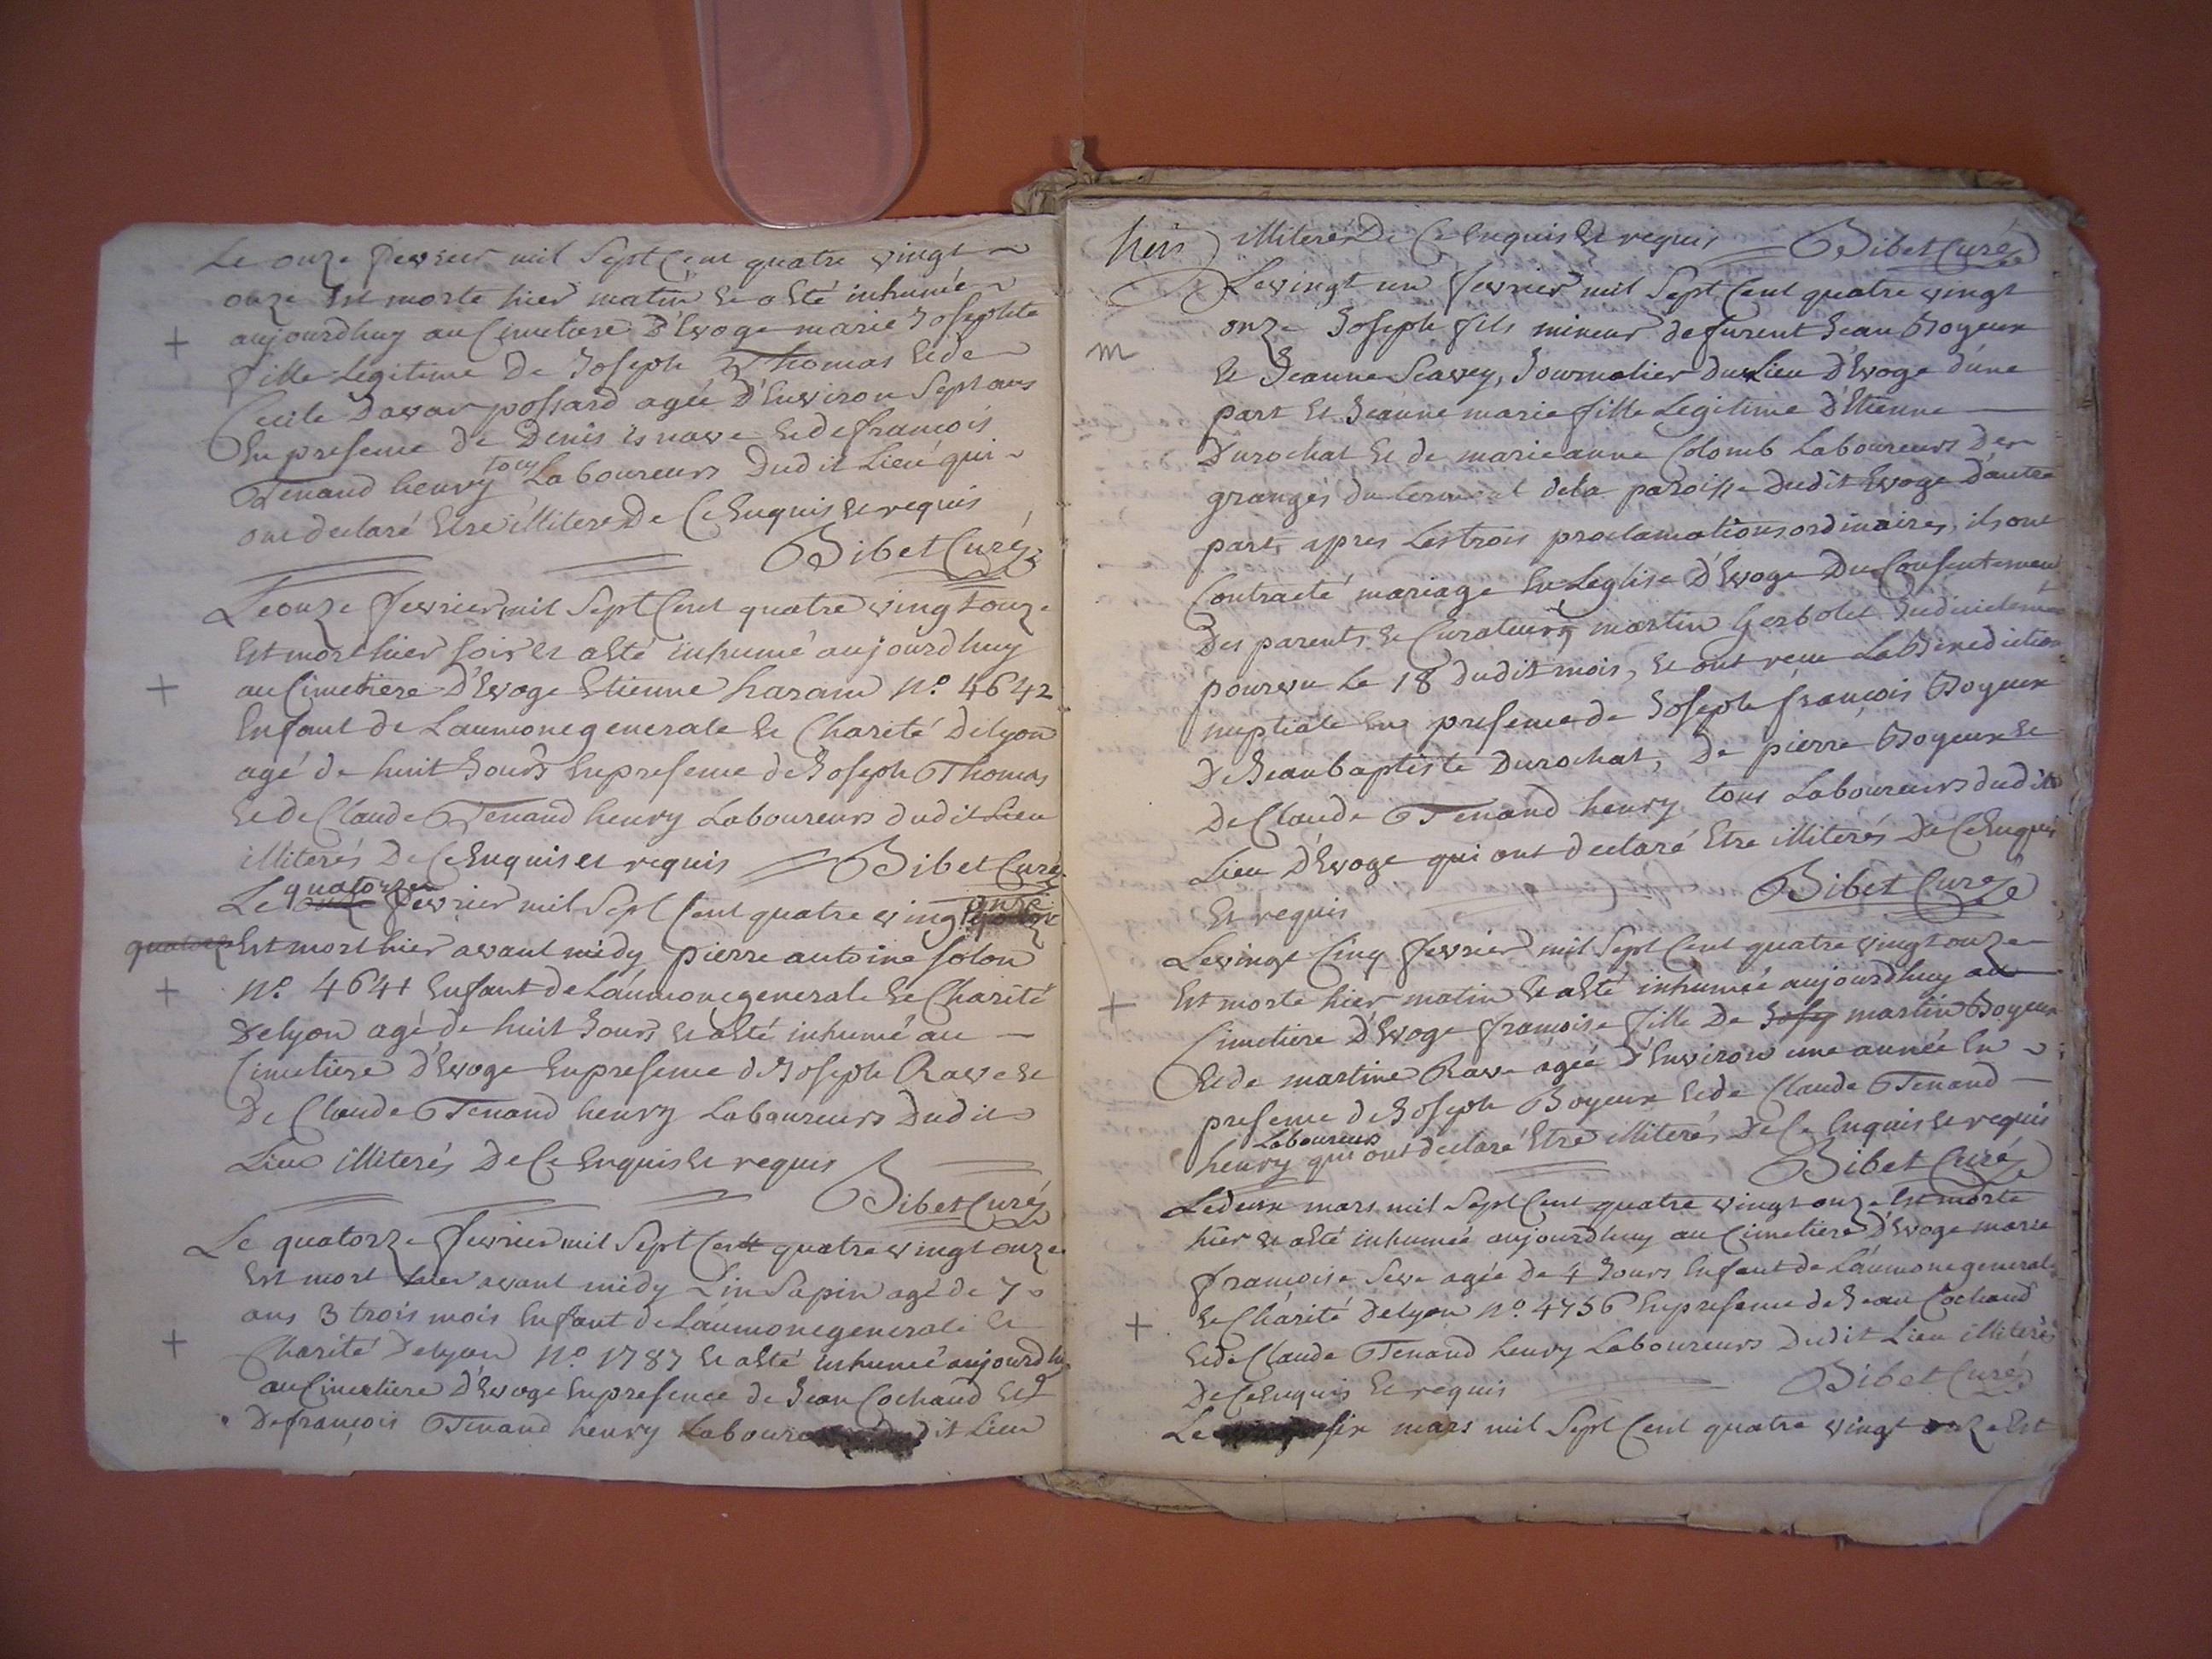 Le onze fevrier mil Sept Cent quatre vingt
onze Est morte hier matin Et a Eté inhumée
aujourdhuy au Cimetiere D'Evoge marie Josephte
fille Legitime De Joseph Thomas Et de
Cecile Davar possard agée D'Environ Sept ans
En presence De Denis Et de françois
Tenand henry tous Laboureurs Dudit Lieu qui
ont declaré Etre illiterés De Ce Enquis Et requis
Bibet Curé
Le onze fevrier mil Sept Cent quatre vingt onze
Est mort hier soir Et a Eté inhumé aujourdhuy
au Cimetiere D'Evoge Etienne haram N.º 4642
Enfant de Laumone generale Et Charité De lyon
agé de huit Jours En presence de Joseph Thomas
Et de Claude Tenand henry Laboureurs dudit Lieu
illiterés De Ce Enquis et requis Bibet Curé
quatorze onze
Le onze fevrier mil Sept Cent quatre vingt
quatorze Est mort hier avant midy pierre antoine solon
N.º 4641 Enfant de Laumone generale Et Charité
De lyon agé de huit Jours Et a Eté inhumé au
Cimetiere D'Evoge En presence de Joseph Rave Et
De Claude Tenand henry Laboureurs Dudit
Lieu illiterés De Ce Enquis Et requis
Bibet Curé
Le quatorze fevrier mil Sept Cent quatre vingt onze
Est mort hier avant midy Lin Sapin agé de 7
ans 3 trois mois Enfant de Laumone generale Et
Charité De lyon N.º 1787 Et a Eté inhumé aujourdhuy
au Cimetiere D'Evoge En presence de Jean Cochand Et
De françois Tenand henry dit Lieu
illiterés De Ce Enquis Et requis Bibet Curé
Le vingt un fevrier mil Sept Cent quatre vingt
m
onze Joseph fils mineur de furent Jean Boyeux
Et Jeanne Scavey, Journalier Du Lieu D'Evoge d'une
part Et Jeanne marie fille Legitime D'Etienne
Durochat Et de marie anne Colomb Laboureurs Des
granges du de la paroisse Dudit Evoge D'autre
part, apres Les trois proclamations ordinaires, ils ont
Contracté mariage En Leglise D'Evoge Du Consentement
Des parents Et Curateurs martin gerbolet
pourvu Le 18 Dudit mois, Et ont reçu La Benediction
nuptiale En presence de Joseph françois Boyeux
De Jean baptiste Durochat, De pierre Boyeux Et
De Claude Tenand henry tous Laboureurs dudit
Lieu D'Evoge qui ont declaré Etre illiterés De Ce Enquis
Et requis Bibet Curé
Le vingt Cinq fevrier mil Sept Cent quatre vingt onze
Est morte hier matin Et a Eté inhumée aujourdhuy au
Cimetiere D'Evoge françoise fille De Josep martin Boyeux
Et de martine Rave agée D'Environ une année En
presence de Joseph Boyeux Et de Claude Tenand
Laboureurs
henry qui ont declaré Etre illiterés De Ce Enquis Et requis
Bibet Curé
Le deux mars mil Sept Cent quatre vingt onze Est morte
hier Et a Eté inhumée aujourdhuy au Cimetiere D'Evoge marie
françoise Seve agée De 4 Jours Enfant de Laumone generale
Et Charité De lyon N.º 4756 En presence de Jean Cochand
Et de Claude Tenand henry Laboureurs Dudit Lieu illiterés
De Ce Enquis Et requis Bibet Curé
Le six mars mil Sept Cent quatre vingt onze Est